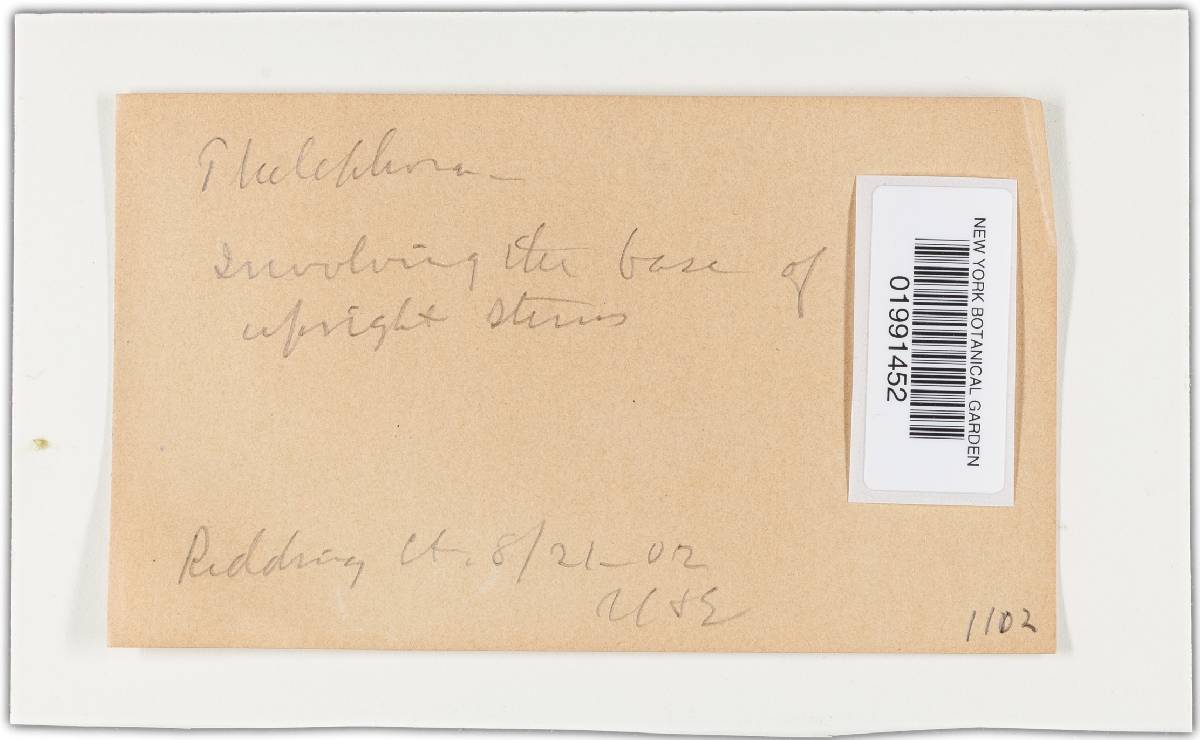 Thelephora—
Involving the base of
upright stems
Redding Ct. 8/21—02
1102
NEW YORK BOTANICAL GARDEN
01991452